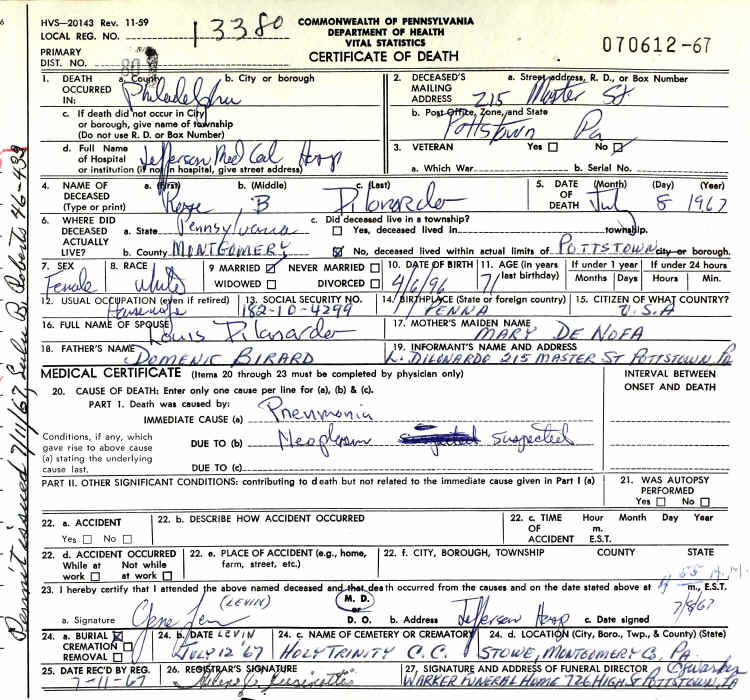 HVS-20143 Rev. 11-59
LOCAL REG. NO. 13380
COMMONWEALTH OF PENNSYLVANIA
DEPARTMENT OF HEALTH
VITAL STATISTICS
CERTIFICATE OF DEATH
070612-67
PRIMARY
DIST. NO.
1. DEATH OCCURRED IN: a. County b. City or borough
Philadelphia
c. If death did not occur in City or borough, give name of township (Do not use R. D. or Box Number)
d. Full Name of Hospital or institution (if not in hospital, give street address) Jefferson Med Col Hosp
2. DECEASED'S MAILING ADDRESS a. Street address, R. D., or Box Number
215 Master St
b. Post Office, Zone, and State
Pottstown Pa
3. VETERAN Yes No
a. Which War b. Serial No.
4. NAME OF DECEASED (Type or print) a. (First) b. (Middle) c. (Last)
Rose B Dilonardo
5. DATE OF DEATH (Month) (Day) (Year)
July 8 1967
6. WHERE DID DECEASED ACTUALLY LIVE?
a. State Pennsylvania
b. County MONTGOMERY
c. Did deceased live in a township?
Yes, deceased lived in township.
No, deceased lived within actual limits of POTTSTOWN city or borough.
7. SEX Female
8. RACE White
9 MARRIED NEVER MARRIED
WIDOWED DIVORCED
10. DATE OF BIRTH 4/6/96
11. AGE (in years last birthday) 71
If under 1 year If under 24 hours
Months Days Hours Min.
12. USUAL OCCUPATION (even if retired) Housewife
13. SOCIAL SECURITY NO. 182-10-4299
14. BIRTHPLACE (State or foreign country) PENNA
15. CITIZEN OF WHAT COUNTRY? U.S.A
16. FULL NAME OF SPOUSE Louis Dilonardo
17. MOTHER'S MAIDEN NAME MARY DE NOFA
18. FATHER'S NAME DOMENIC BIRARD
19. INFORMANT'S NAME AND ADDRESS
L. DILONARDO 215 MASTER ST POTTSTOWN, PA
MEDICAL CERTIFICATE (Items 20 through 23 must be completed by physician only)
INTERVAL BETWEEN ONSET AND DEATH
20. CAUSE OF DEATH: Enter only one cause per line for (a), (b) & (c).
PART I. Death was caused by:
IMMEDIATE CAUSE (a) Pneumonia
Conditions, if any, which gave rise to above cause (a) stating the underlying cause last.
DUE TO (b) Neoplasm suspected
DUE TO (c)
PART II. OTHER SIGNIFICANT CONDITIONS: contributing to death but not related to the immediate cause given in Part I (a)
21. WAS AUTOPSY PERFORMED
Yes No
22. a. ACCIDENT
Yes No
22. b. DESCRIBE HOW ACCIDENT OCCURRED
22. c. TIME OF ACCIDENT Hour Month Day Year
m.
E.S.T.
22. d. ACCIDENT OCCURRED
While at work Not while at work
22. e. PLACE OF ACCIDENT (e.g., home, farm, street, etc.)
22. f. CITY, BOROUGH, TOWNSHIP COUNTY STATE
23. I hereby certify that I attended the above named deceased and that death occurred from the causes and on the date stated above at 55 A.M. m., E.S.T.
(LEVIN)
a. Signature M. D. or D. O. b. Address Jefferson Hosp c. Date signed 7/8/67
24. a. BURIAL
CREMATION
REMOVAL
24. b. DATE LEVIN
JULY 12 '67
24. c. NAME OF CEMETERY OR CREMATORY
HOLY TRINITY C.C.
24. d. LOCATION (City, Boro., Twp., & County) (State)
STOWE, MONTGOMERY CO, PA.
25. DATE REC'D BY REG. 7-11-67
26. REGISTRAR'S SIGNATURE
27. SIGNATURE AND ADDRESS OF FUNERAL DIRECTOR
WARKER FUNERAL HOME 726 HIGH ST POTTSTOWN, PA
Permit issued 7/11/67 Lulu B. Roberts 46-499